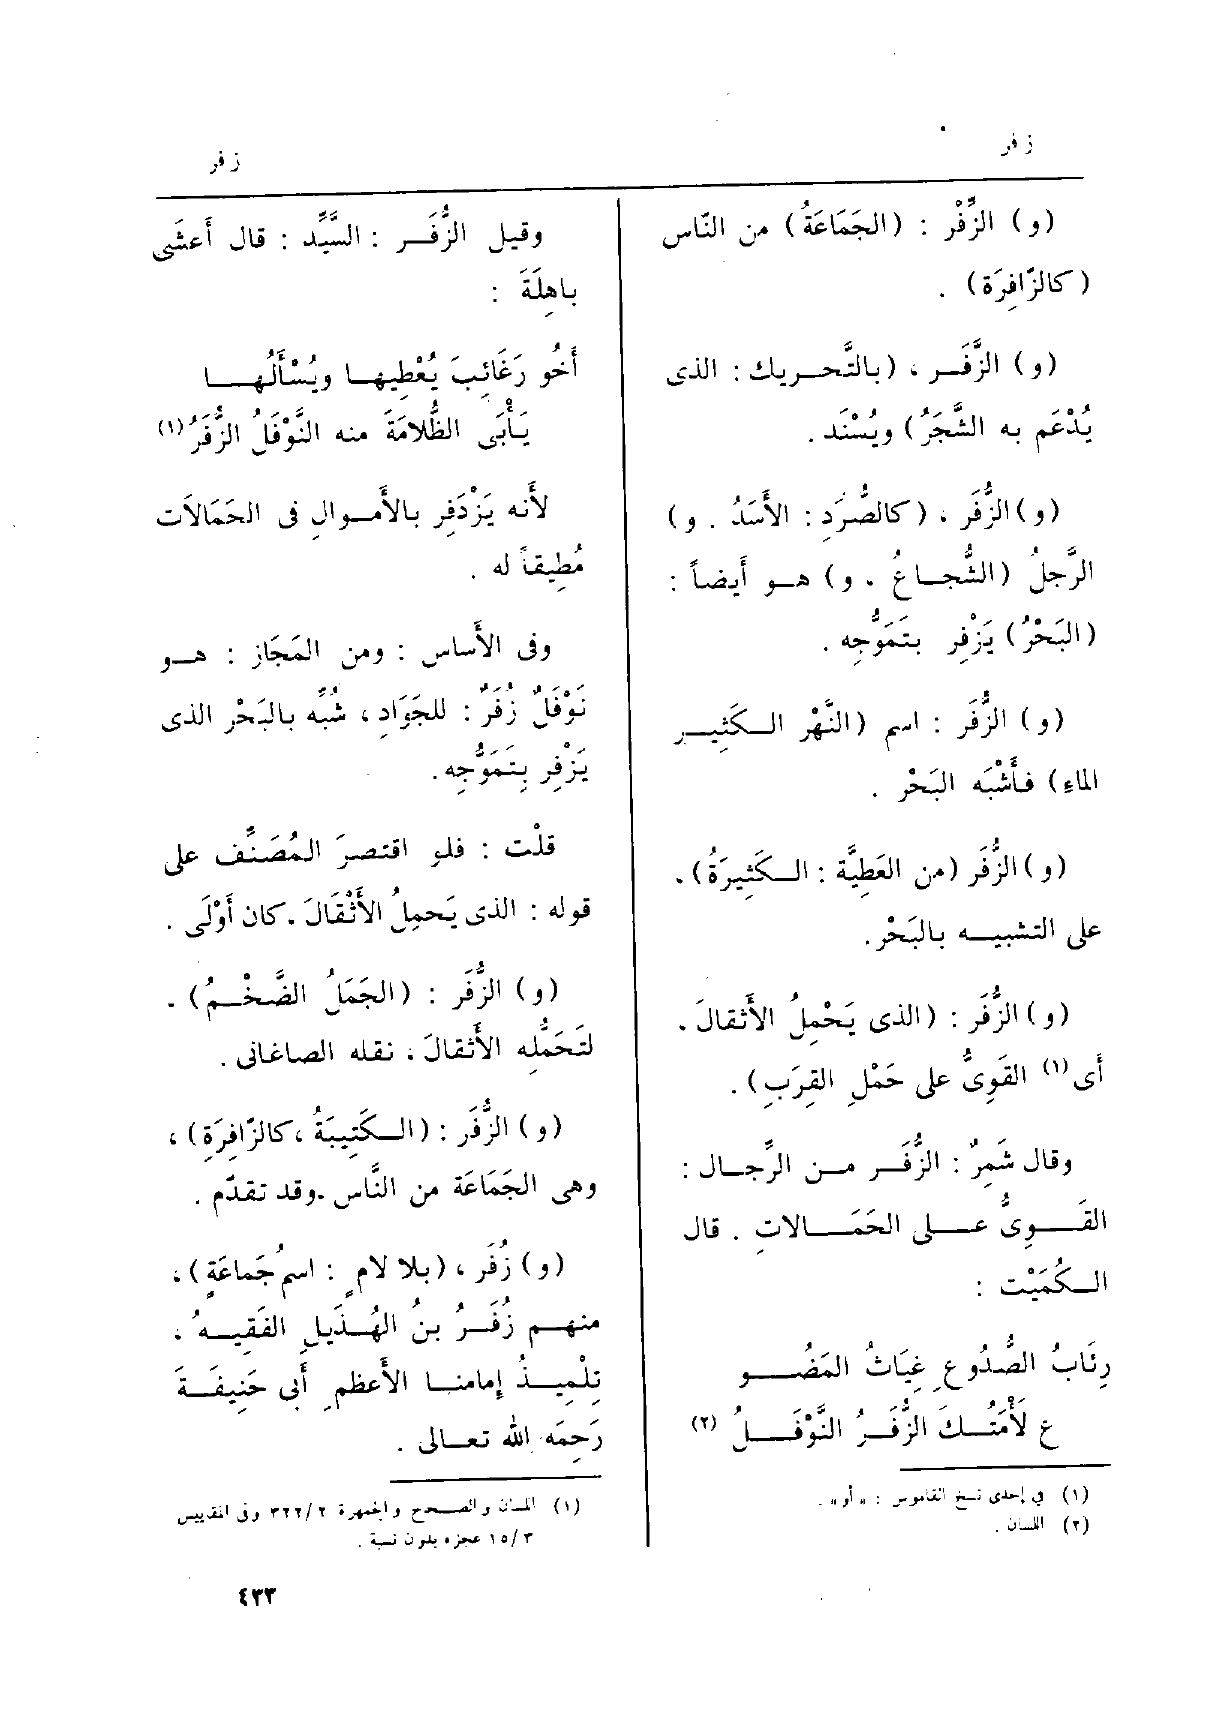 زفر
زفر
(و) الزِّفْر : (الجَمَاعَةُ) من النّاس
(كالزّافِرَة) .
(و) الزَّفَـر ، (بالتَّحريك : الذى
يُدْعَم به الشَّجَرُ) ويُسْنَد .
(و) الزُّفَر ، (كالصُّرَدِ : الأَسَدُ . و)
الرَّجلُ (الشُّجاعُ . و) هو أَيضاً :
(البَحْرُ) يَزْفِر بتَمَوُّجِه .
(و) الزُّفَر : اسم (النَّهْر الكَثِير
الماءِ) فأَشْبَه البَحْر .
(و) الزُّفَر (من العَطِيَّة : الكَثِيرَةُ) .
على التشبيه بالبَحْر .
(و) الزُّفَر : (الذى يَحْمِلُ الأَثقالَ .
أَى (١) القَوِىُّ على حَمْلِ القِرَبِ) .
وقال شَمِرٌ : الزُّفَر من الرِّجال :
القَوِىُّ على الحَمَالاتِ . قال
الكُمَيْت :
رِئَابُ الصُّدُوعِ غِيَاثُ المَضُو
عِ لَأْمَتُكَ الزُّفَرُ النَّوْفَلُ (٢)
(١) في إحدى نسخ القاموس : « أو » .
(٢) اللسان .
وقيل الزُّفَـر : السَّيِّد : قال أَعشَى
باهِلَةَ :
أَخُو رَغَائِبَ يُعْطِيها ويُسْأَلُها
يَأْبَى الظُّلامَةَ منه النَّوْفَلُ الزُّفَرُ (١)
لأَنه يَزْدَفِر بالأَموالِ فى الحَمَالَات
مُطِيقاً له .
وفى الأَساس : ومن المَجَاز : هو
نَوْفَلٌ زُفَرٌ : للجَوَادِ ، شُبِّه بالبَحْر الذى
يَزْفِر بِتَمَوُّجِه .
قلْت : فلو اقتصرَ المُصَنِّف على
قوله : الذى يَحمِلُ الأَثْقَالَ . كان أَوْلَى .
(و) الزُّفَر : (الجَمَلُ الضَّخْمُ) .
لتَحَمُّلِه الأَثقالَ ، نقله الصاغانى .
(و) الزُّفَر : (الكَتِيبَةُ ، كالزّافِرَةِ) ،
وهى الجَمَاعَة من النَّاس . وقد تقدّم .
(و) زُفَر ، (بلا لامٍ : اسمُ جَماعَةٍ) ،
منهم زُفَـرُ بنُ الهُذَيلِ الفَقِيهُ ،
تِلْمِيذُ إِمامنا الأَعظمِ أَبى حَنِيفَةَ
رَحِمَه الله تعالى .
(١) اللسان والصحح والجمهرة ٣٢٢/٢ وفي المقاييس
١٥/٣ عجزه بدون نسبة .
٤٣٣